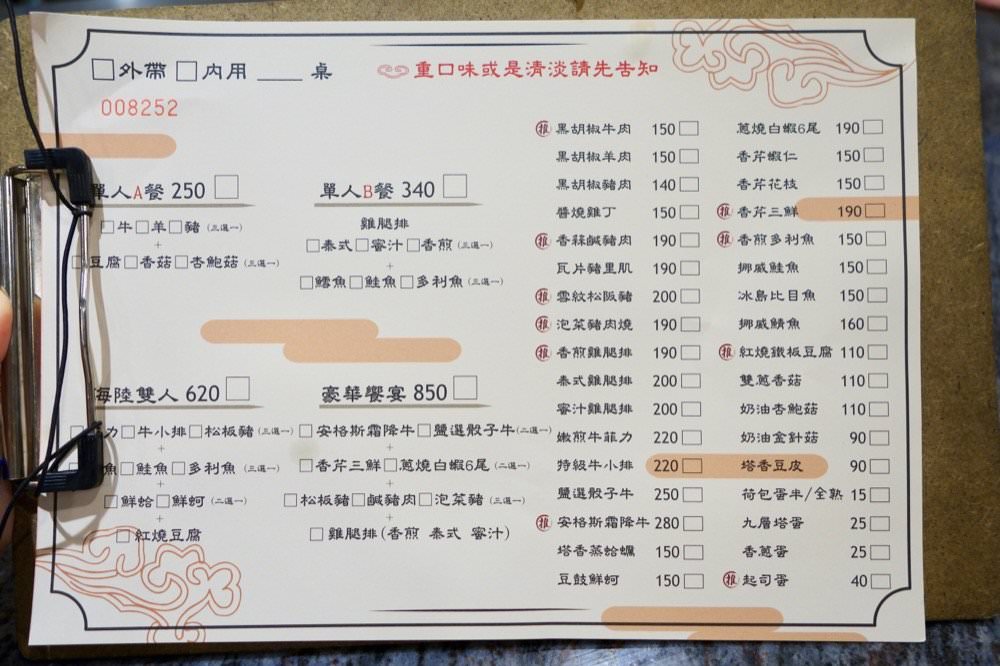 □外帶 □內用 ____ 桌
重口味或是清淡請先告知
008252
單人A餐 250 □
□牛□羊□豬 (三選一)
+
豆腐□香菇□杏鮑菇 (三選一)
單人B餐 340 □
雞腿排
□泰式□蜜汁□香煎 (三選一)
+
□鱈魚□鮭魚□多利魚 (三選一)
海陸雙人 620 □
力□牛小排□松板豬 (三選一)
+
魚□鮭魚□多利魚 (三選一)
+
□鮮蛤□鮮蚵 (二選一)
+
□紅燒豆腐
豪華饗宴 850 □
□安格斯霜降牛□鹽選骰子牛 (二選一)
+
□香芹三鮮□蔥燒白蝦6尾 (二選一)
+
□松板豬□鹹豬肉□泡菜豬 (三選一)
+
□雞腿排(香煎 泰式 蜜汁)
推 黑胡椒牛肉 150 □
黑胡椒羊肉 150 □
黑胡椒豬肉 140 □
醬燒雞丁 150 □
推 香蒜鹹豬肉 190 □
瓦片豬里肌 190 □
推 雪紋松阪豬 200 □
推 泡菜豬肉燒 190 □
推 香煎雞腿排 190 □
泰式雞腿排 200 □
蜜汁雞腿排 200 □
嫩煎牛菲力 220 □
特級牛小排 220 □
鹽選骰子牛 250 □
推 安格斯霜降牛 280 □
塔香蒸蛤蠣 150 □
豆鼓鮮蚵 150 □
蔥燒白蝦6尾 190 □
香芹蝦仁 150 □
香芹花枝 150 □
推 香芹三鮮 190 □
推 香煎多利魚 150 □
挪威鮭魚 150 □
冰島比目魚 150 □
挪威鯖魚 160 □
推 紅燒鐵板豆腐 110 □
雙蔥香菇 110 □
奶油杏鮑菇 110 □
奶油金針菇 90 □
塔香豆皮 90 □
荷包蛋半/全熟 15 □
九層塔蛋 25 □
香蔥蛋 25 □
推 起司蛋 40 □